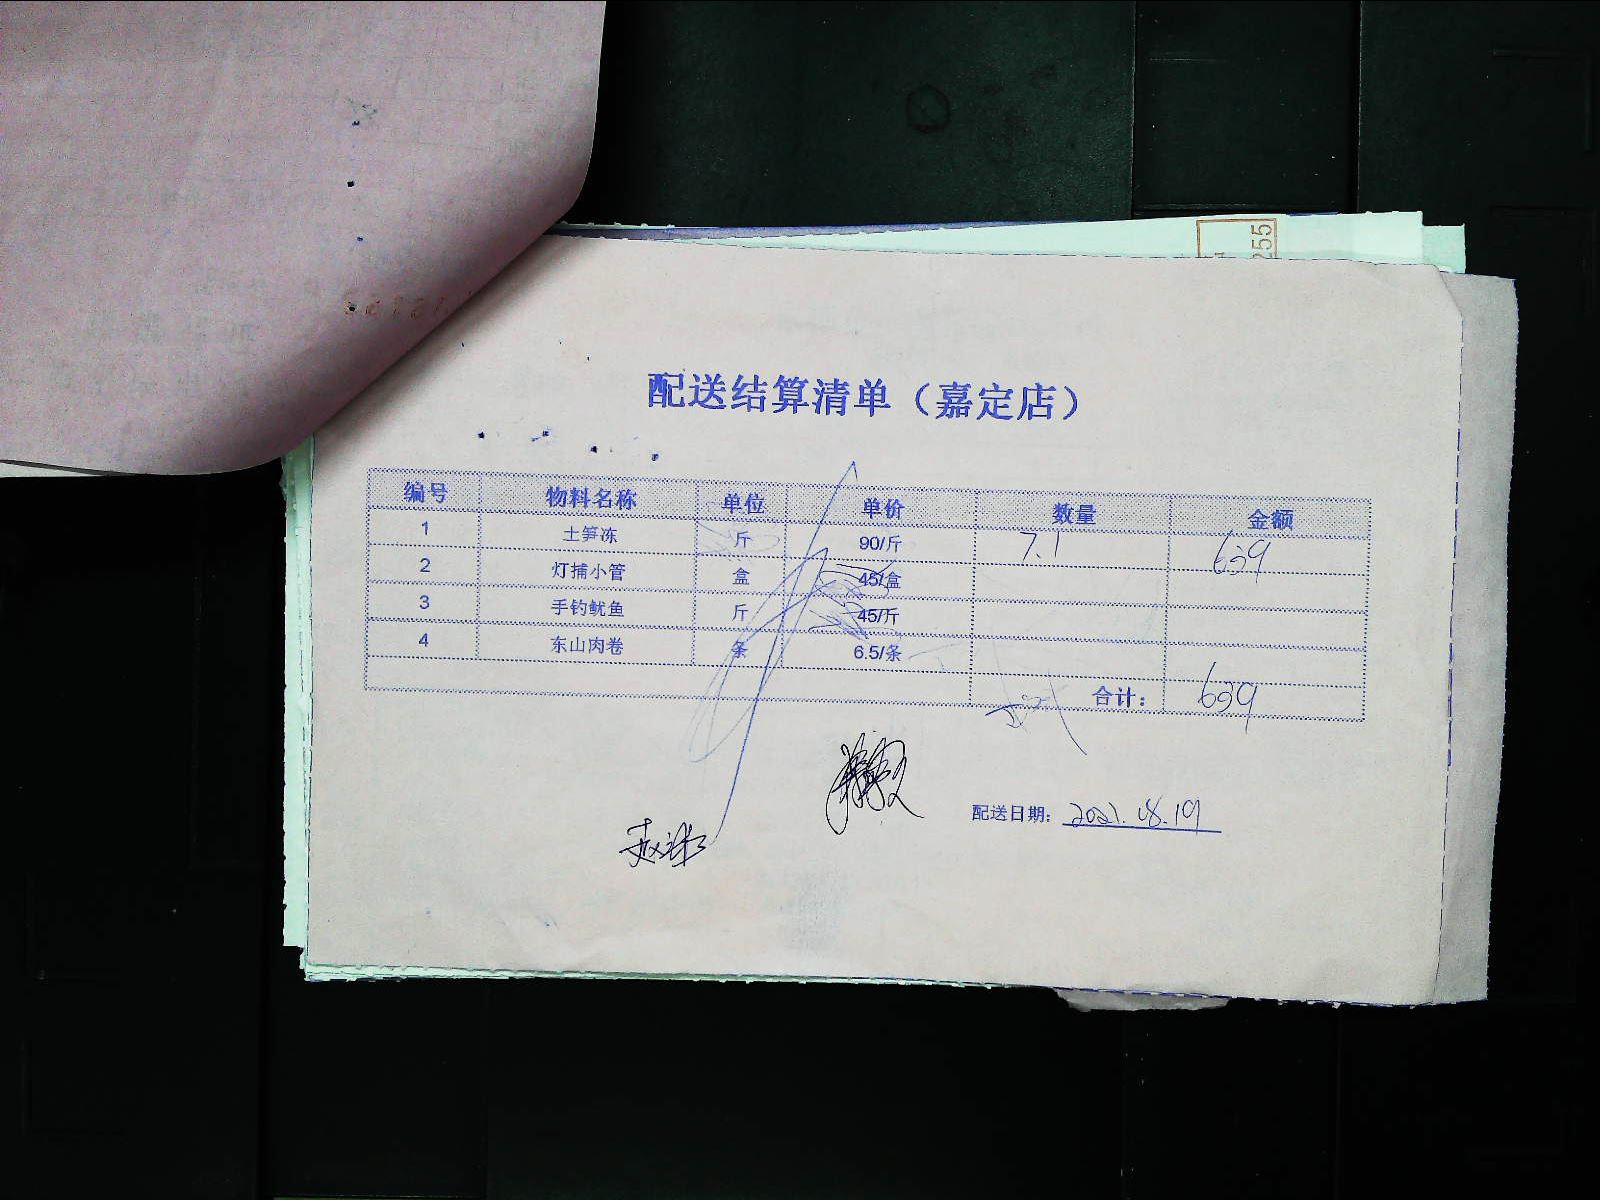 255
配送结算清单（嘉定店）
编号 物料名称 单位 单价 数量 金额
1 土笋冻 斤 90/斤 7.1 639
2 灯捕小管 盒 45/盒
3 手钓鱿鱼 斤 45/斤
4 东山肉卷 条 6.5/条
合计： 639
配送日期： 2021.08.19